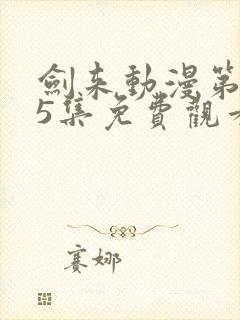 劍来動漫第
5集免費觀看
賽娜